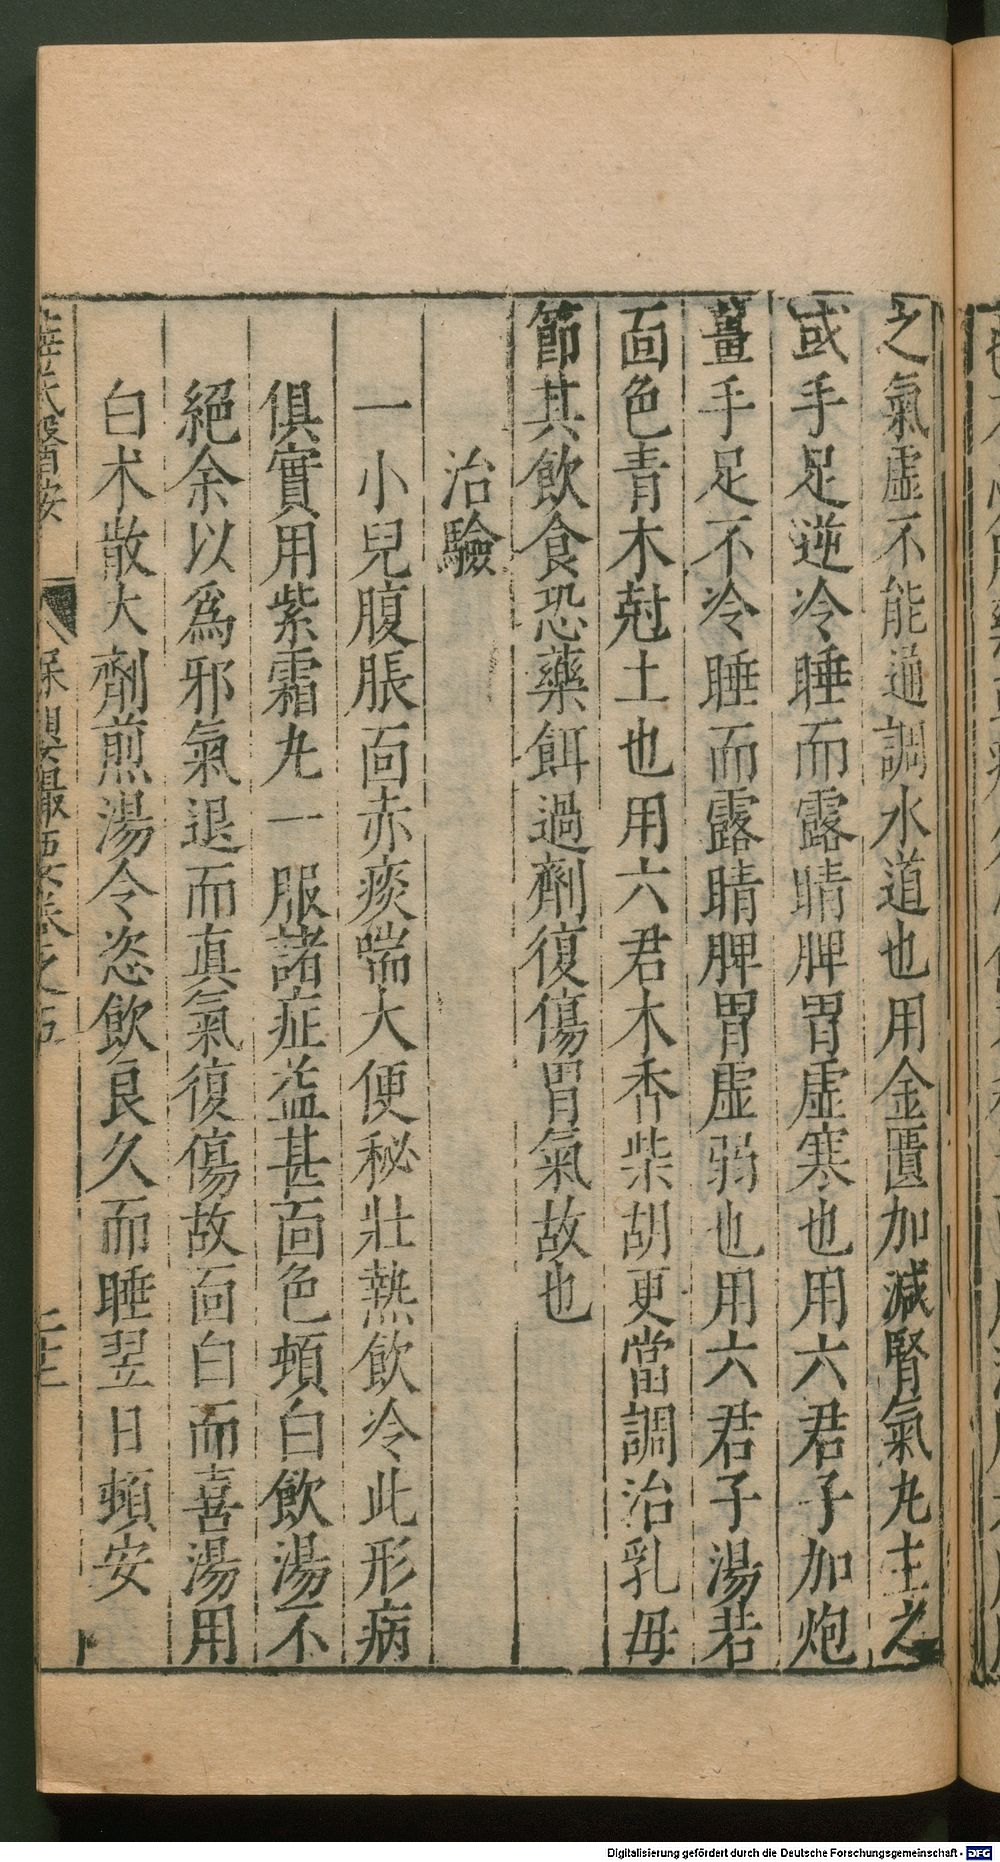 之氣虛不能通調水道也用金匱加減腎氣丸主之
或手足逆冷睡而露睛脾胃虛寒也用六君子加炮
薑手足不冷睡而露睛脾胃虛弱也用六君子湯若
面色青木尅土也用六君木香柴胡更當調治乳母
節其飲食恐藥餌過劑復傷胃氣故也
治驗
一小兒腹脹面赤痰喘大便秘壯熱飲冷此形病
俱實用紫霜丸一服諸症益甚面色頓白飲湯不
絕余以爲邪氣退而真氣復傷故面白而喜湯用
白朮散大劑煎湯令恣飲良久而睡翌日頓安
保嬰撮要卷之五
Digitalisierung gefördert durch die Deutsche Forschungsgemeinschaft - DFG